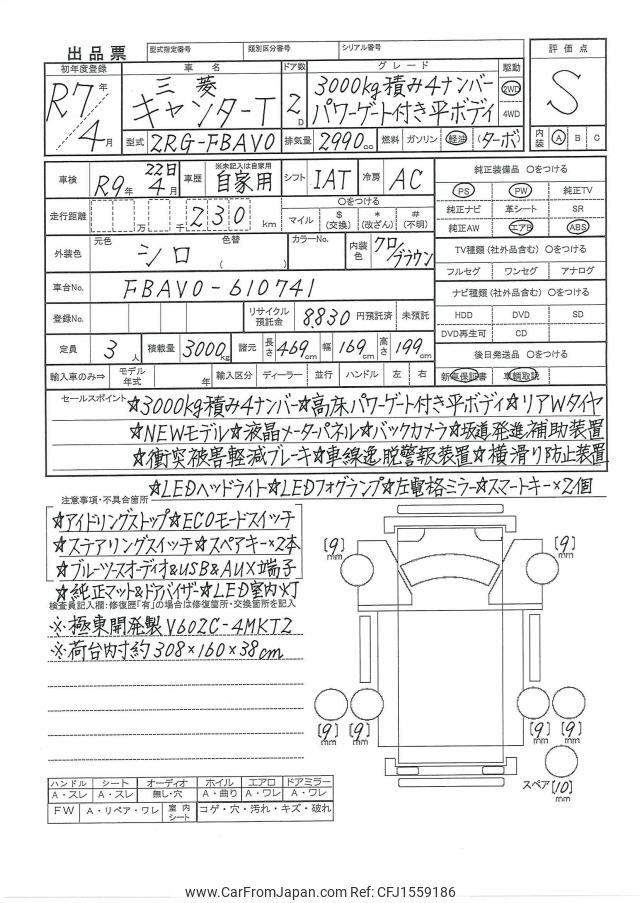 出品票 型式指定番号 類別区分番号 シリアル番号
初年度登録 車名 ドア数 グレード 駆動 評価点
R7年 4月 三菱 キャンターT 2D 3000kg積み4ナンバー パワーゲート付き平ボディ 2WD 4WD S
型式 2RG-FBAV0 排気量 2990cc 燃料 ガソリン 軽油 (ターボ) 内装 A B C
車検 R9年 4月 22日 車歴 ※未記入は自家用 自家用 シフト IAT 冷房 AC
走行距離 万 千 230 km ○をつける マイル $(交換) *(改ざん) #(不明)
外装色 元色 シロ 色替 ( ) カラーNo. 内装色 クロ/ブラウン
車台No. FBAV0-610741
登録No. リサイクル預託金 8,830 円預託済 未預託
定員 3人 積載量 3000kg 諸元 長さ 469cm 幅 169cm 高さ 199cm
輸入車のみ⇒ モデル年式 年 輸入区分 ディーラー 並行 ハンドル 左 右
純正装備品 ○をつける
PS PW 純正TV
純正ナビ 革シート SR
純正AW エアB ABS
TV種類(社外品含む) ○をつける
フルセグ ワンセグ アナログ
ナビ種類(社外品含む) ○をつける
HDD DVD SD
DVD再生可 CD
後日発送品 ○をつける
新車保証書 車輌取説
セールスポイント ☆3000kg積み4ナンバー☆高床パワーゲート付き平ボディ☆リアWタイヤ
☆NEWモデル☆液晶メーターパネル☆バックカメラ☆坂道発進補助装置
☆衝突被害軽減ブレーキ☆車線逸脱警報装置☆横滑り防止装置
☆LEDヘッドライト☆LEDフォグランプ☆左電格ミラー☆スマートキー×2個
注意事項・不具合箇所
☆アイドリングストップ☆ECOモードスイッチ
☆ステアリングスイッチ☆スペアキー×2本
☆ブルーツースオーディオ&USB&AUX端子
☆純正マット&ドアバイザー☆LED室内灯
検査員記入欄:修復歴「有」の場合は修復箇所・交換箇所を記入
※極東開発製V602C-4MKT2
※荷台内寸約308×160×38cm
[9]mm [9]mm
[9]mm [9]mm [9]mm [9]mm
スペア[10]mm
ハンドル シート オーディオ ホイル エアロ ドアミラー
A・スレ A・スレ 無し・穴 A・曲り A・ワレ A・ワレ
FW A・リペア・ワレ 室内シート コゲ・穴・汚れ・キズ・破れ
www.CarFromJapan.com Ref: CFJ1559186